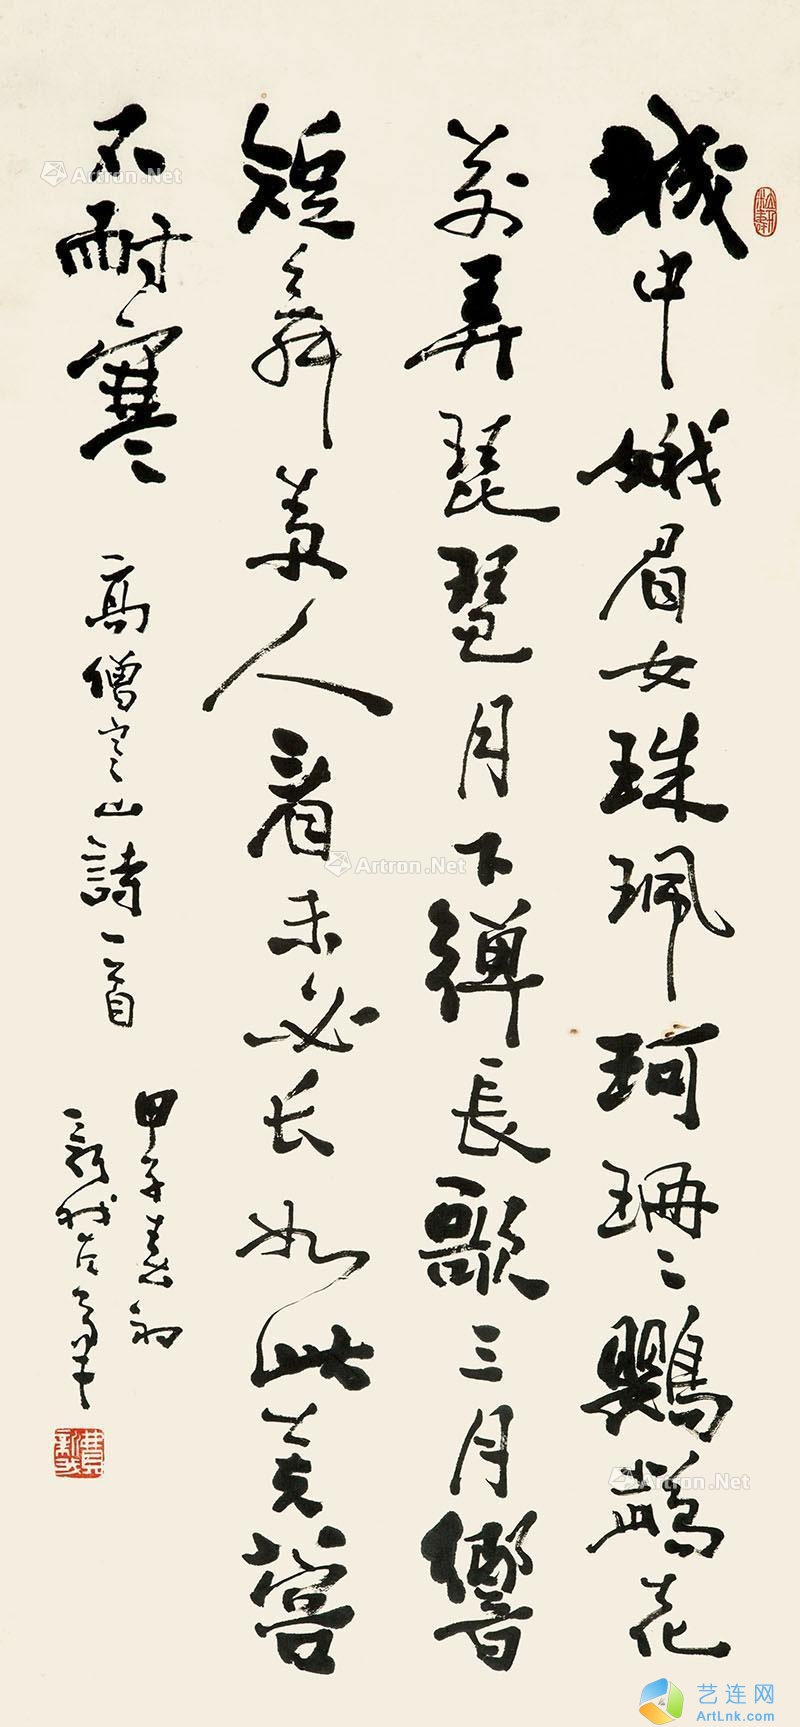 城中娥眉女珠珮珂珊〻鸚鵡花
前弄琵琶月下彈長歌三月響
短舞萬人看未必长如此芙蓉
不耐寒 高僧寒山詩一首
甲子春初
新我左筆
費新我
Artron.Net
Artron.Net
Artron.Net
Artron.Net
艺连网
ArtLnk.com